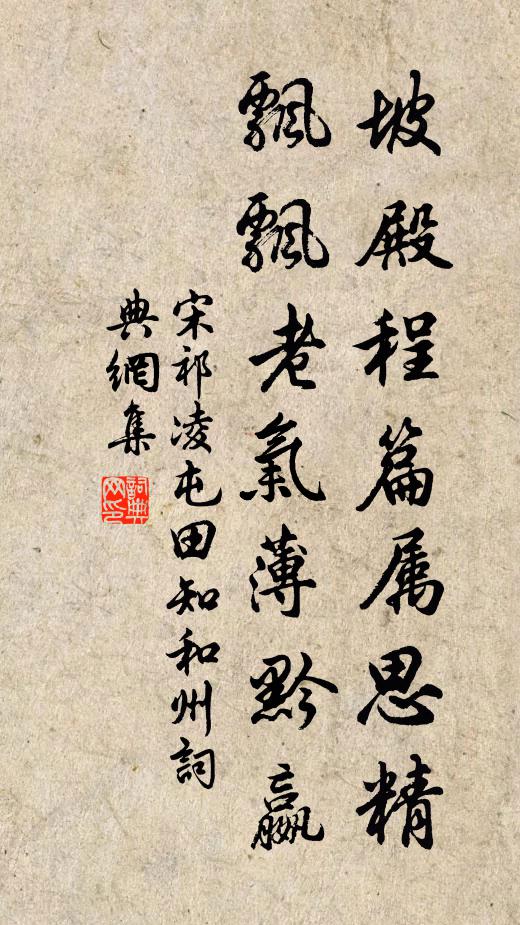 坡殿程篇属思精
飄飄老氣薄黔嬴
宋祁凌屯田知和州詞
典網集
詞典
网印